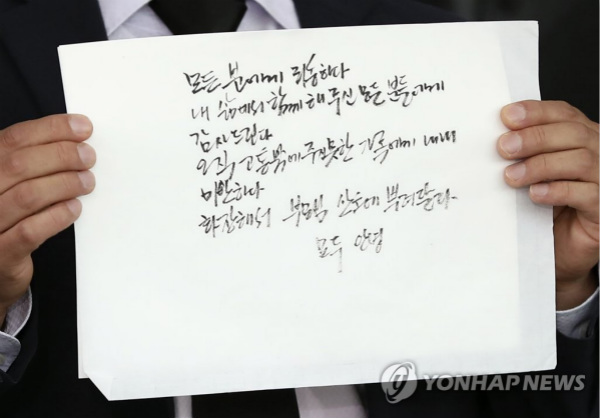 모든 분에게 죄송하다
내 삶에서 함께해 주신 모든 분들에게
감사드린다
오직 고통밖에 주지 못한 가족에게 내내
미안하다
화장해서 부모님 산소에 뿌려달라
모두 안녕
YONHAP NEWS